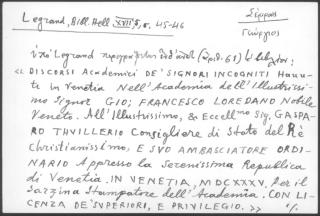 Legrand, Bibl. Hell. XVII, 5, σ. 45-46
Σέρρας
Γεώργιος
ὑπὸ Legrand περιγράφεται (ἀριθ. 61) βιβλίον:
« DISCORSI Academici DE' SIGNORI INCOGNITI Hauu-
ti in VENETIA Nell'Academia dell'Illustrissi-
mo Signor GIO; FRANCESCO LOREDANO Nobile
Veneto. All'Illustrissimo, & Eccell.mo Sig. GASPA-
RO THVILLERIO Consigliere di Stato del Rè
Christianissimo, E SVO AMBASCIATORE ORDI-
NARIO Appresso la Serenissima Republica
di Venetia. IN VENETIA, MDCXXXV. Per il
Sarzina Stampatore dell'Academia. CON LI-
CENZA DE' SUPERIORI, E PRIVILEGIO. »